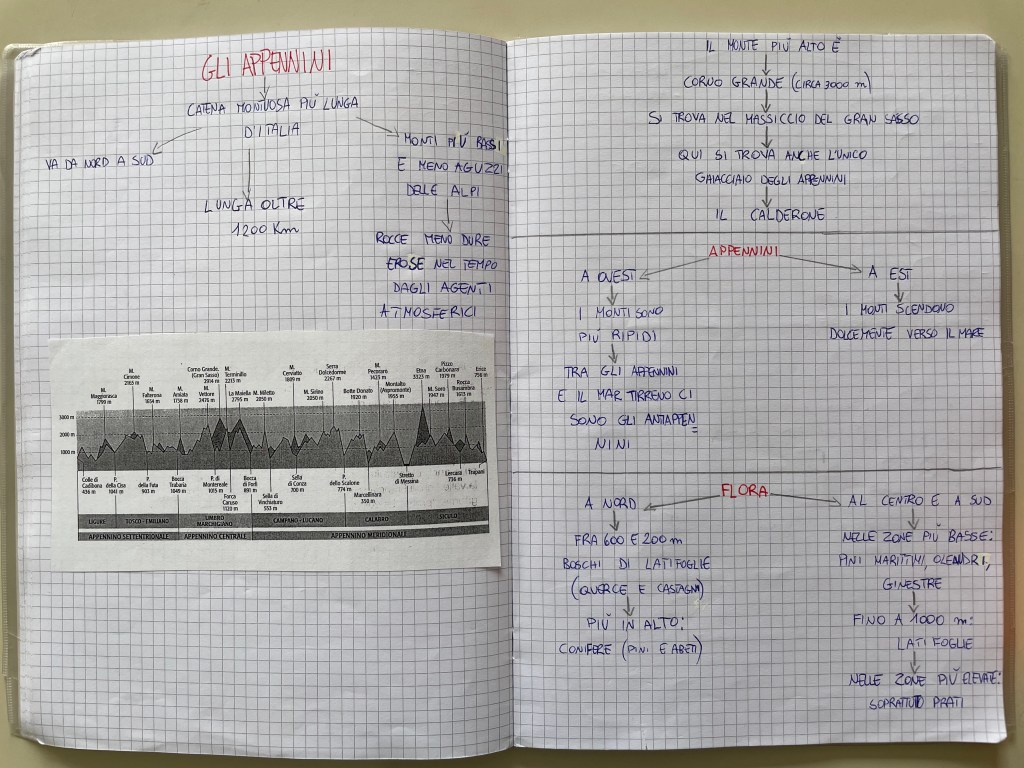 GLI APPENNINI
CATENA MONTUOSA PIÙ LUNGA
D'ITALIA
VA DA NORD A SUD
LUNGA OLTRE
1200 Km
MONTI PIÙ BASSI
E MENO AGUZZI
DELLE ALPI
ROCCE MENO DURE
EROSE NEL TEMPO
DAGLI AGENTI
ATMOSFERICI
3000 m
2000 m
1000 m
M.
Maggiorasca
1799 m
M.
Cimone
2165 m
Falterona
1654 m
M.
Amiata
1738 m
Corno Grande,
(Gran Sasso)
2914 m
M.
Vettore
2476 m
M.
Terminillo
2213 m
La Maiella
2795 m
M. Miletto
2050 m
M.
Cervialto
1809 m
M. Sirino
2050 m
Serra
Dolcedorme
2267 m
Botte Donato
1920 m
M.
Pecoraro
1423 m
Montalto
(Aspromonte)
1955 m
Etna
3323 m
M. Soro
1847 m
Pizzo
Carbonara
1979 m
Rocca
Busambra
1613 m
Erice
756 m
Colle di
Cadibona
436 m
P.
della Cisa
1041 m
P.
della Futa
903 m
Bocca
Trabaria
1049 m
P. di
Montereale
1015 m
Forca
Caruso
1120 m
Bocca
di Forlì
891 m
Sella di
Vinchiaturo
553 m
Sella
di Conza
700 m
P.
dello Scalone
774 m
Marcellinara
350 m
Stretto
di Messina
Lercara
736 m
Trapani
LIGURE
TOSCO - EMILIANO
UMBRO
MARCHIGIANO
CAMPANO - LUCANO
CALABRO
SICULO
APPENNINO SETTENTRIONALE
APPENNINO CENTRALE
APPENNINO MERIDIONALE
IL MONTE PIÙ ALTO È
CORNO GRANDE (CIRCA 3000 m)
SI TROVA NEL MASSICCIO DEL GRAN SASSO
QUI SI TROVA ANCHE L'UNICO
GAIACCIAIO DEGLI APPENNINI
IL CALDERONE
APPENNINI
A OVEST
I MONTI SONO
PIÙ RIPIDI
TRA GLI APPENNINI
E IL MAR TIRRENO CI
SONO GLI ANTIAPPEN=
NINI
A EST
I MONTI SCENDONO
DOLCEMENTE VERSO IL MARE
FLORA
A NORD
FRA 600 E 200 m
BOSCHI DI LATIFOGLIE
(QUERCE E CASTAGNI)
PIÙ IN ALTO:
CONIFERE (PINI E ABETI)
AL CENTRO E A SUD
NELLE ZONE PIÙ BASSE:
PINI MARITTIMI, OLEANDRI,
GINESTRE
FINO A 1000 m:
LATIFOGLIE
NELLE ZONE PIÙ ELEVATE:
SOPRATTUTTO PRATI